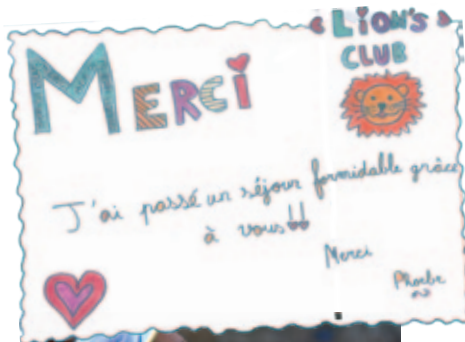 MERCI
LION'S
CLUB
J'ai passé un séjour formidable grâce
à vous!!
Merci
Phoebe